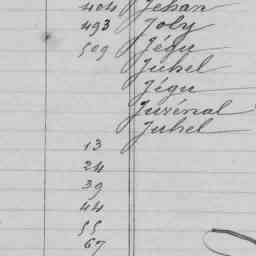 404 Jehan
493 Joly
509 Jégu
Juhel
Jégu
Juzénal
Juhel
13
24
39
44
55
67